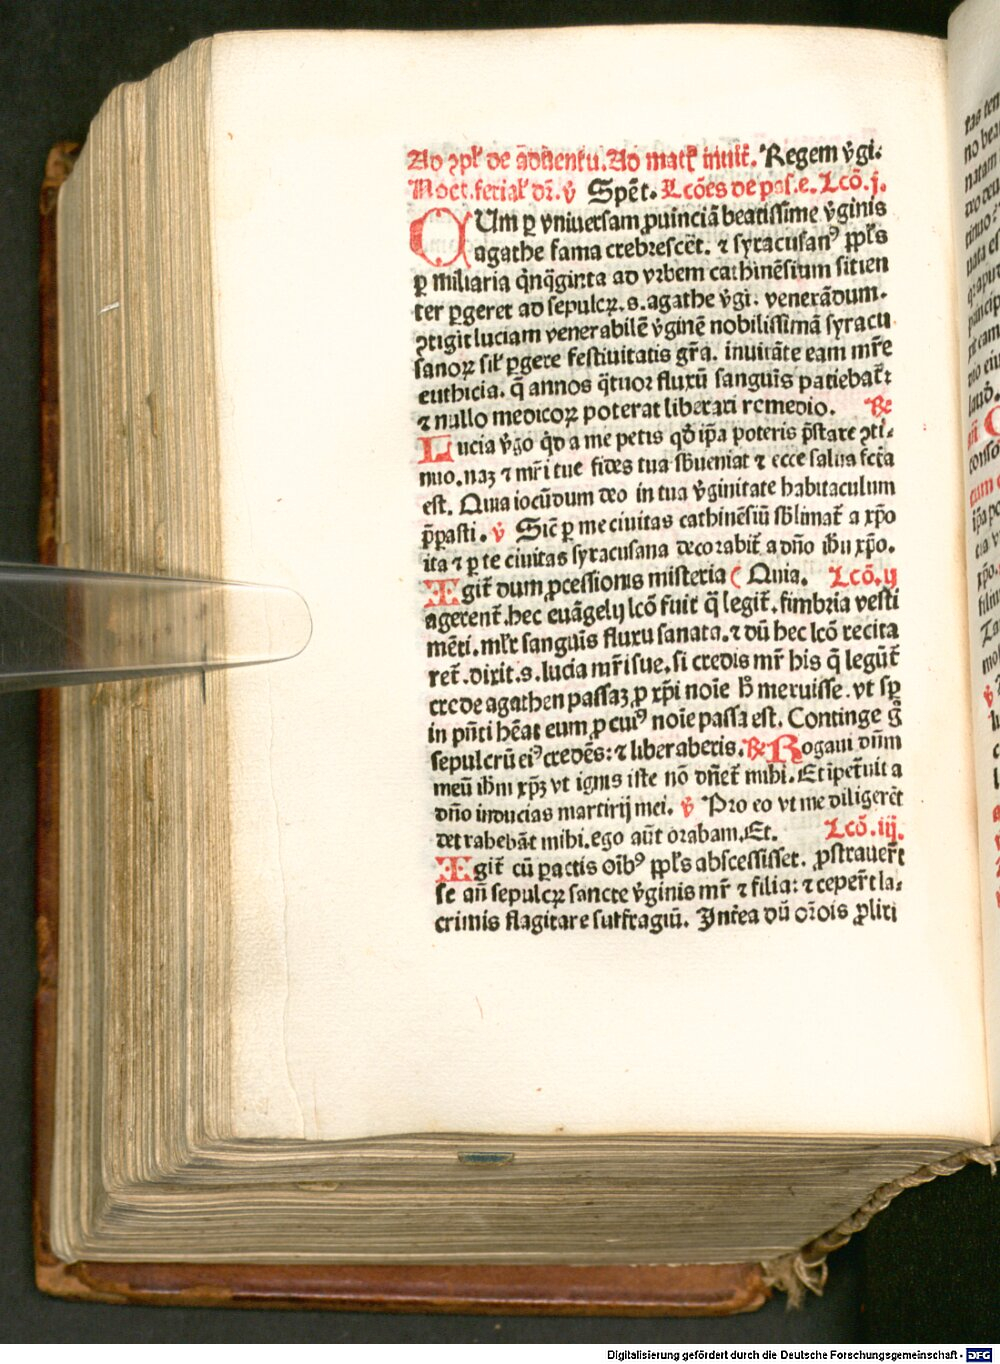 Ad ꝯpꝉ de aduentu. Ad matꝉ inuit̄. Regem v̄gi.
Noct. ferial' dr̄. ℣ Spēt. Lcōes de pas.e. Lcō. j.
CUm ꝑ vniuersam ꝓuinciā beatissime v̄ginis
agathe fama crebrescēt. ⁊ syracusanꝰ pp̄ls
ꝑ miliaria q̄nq̄ginta ad vrbem cathinēsium sitien
ter ꝑgeret ad sepulcꝝ. s. agathe v̄gi. venerādum.
ꝯtigit luciam venerabilē v̄ginē nobilissimā syracu
sanoꝝ sil' ꝑgere festiuitatis gr̄a. inuitāte eam mr̄e
euthicia. q̄ annos q̄tuor fluxū sanguīs patiebat̄⁊
⁊ nullo medicoꝝ poterat liberari remedio. ℟
Lucia v̄go qd̄ a me petis qd̄ ip̄a poteris p̄stare ꝯti⸗
nuo. naꝫ ⁊ mr̄i tue fides tua sb̄ueniat ⁊ ecce salua fc̄ta
est. Quia iocūdum deo in tua v̄ginitate habitaculum
p̄pasti. ℣ Sic̄ ꝑ me ciuitas cathinēsiū sb̄limat̄ a xp̄o
ita ⁊ ꝑ te ciuitas syracusana decorabit̄ a dn̄o ih̄u xp̄o.
Igit̄ dum ꝓcessionis misteria ( Quia. Lcō. ij
agerent̄. hec euāgelij lcō fuit q̄ legit̄. fimbria vesti
mēti. mlr̄ sanguīs fluxu sanata. ⁊ dū hec lcō recita
ret̄. dixit. s. lucia mr̄i sue. si credis mr̄ his q̄ legūt̄
crede agathen passaꝫ ꝓ xp̄i noīe h̄ meruisse. vt sꝑ
in pn̄ti hēat eum ꝓ cuiꝰ noīe passa est. Continge g̊
sepulcrū eiꝰ credēs: ⁊ liberaberis. ℟ Rogaui dn̄m
meū ih̄m xp̄ꝫ vt ignis iste nō dn̄et̄ mihi. Et īpet̄uit a
dn̄o inducias martirij mei. ℣ Pro eo vt me diligerēt
detrahebāt mihi. ego aūt orabam. Et. Lcō. iij.
Igit̄ cū ꝑactis oībꝰ pp̄ls abscessisset. ꝓstrauer̄t
se an̄ sepulcꝝ sancte v̄ginis mr̄ ⁊ filia: ⁊ ceper̄t la⸗
crimis flagitare suffragiū. Int̄ea dū orōis ꝓlixi
Digitalisierung gefördert durch die Deutsche Forschungsgemeinschaft - DFG